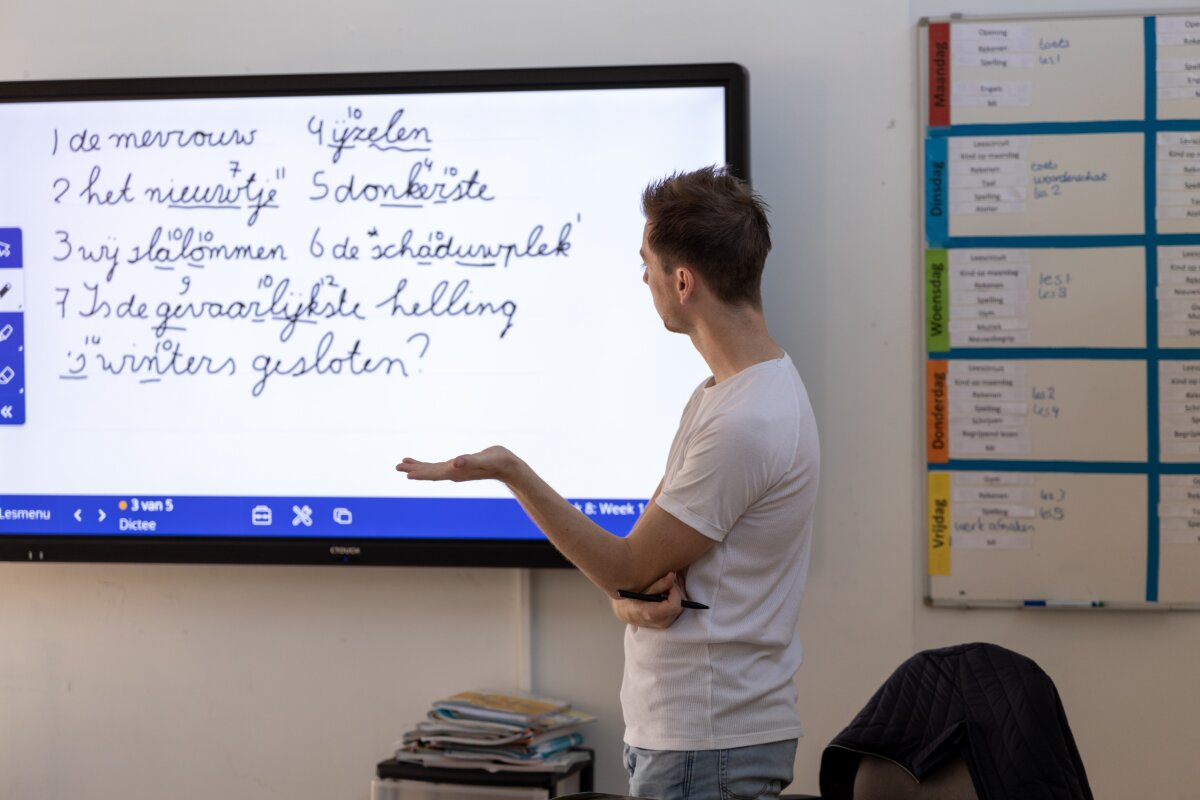 10
1 de mevrouw 4 ijzelen
7 11 4 10
2 het nieuwtje 5 donkerste
10 10 * 10 1
3 wij slalommen 6 de schaduwplek
9 10 12
7 Is de gevaarlijkste helling
14 10
's winters gesloten?
Lesmenu
3 van 5
Dictee
8: Week
CTOUCH
Maandag
Opening
Rekenen
Spelling
Engels
MI
toets
les 1
Dinsdag
Leescircuit
Kind op maandag
Rekenen
Taal
Spelling
Atelier
toets
woordenschat
les 2
Woensdag
Leescircuit
Kind op maandag
Rekenen
Spelling
Gym
Muziek
Nieuwsbegrip
les 1
les 3
Donderdag
Leescircuit
Kind op maandag
Rekenen
Spelling
Schrijven
Begrijpend lezen
MI
les 2
les 4
Vrijdag
Gym
Rekenen
Spelling
werk afmaken
MI
les 3
les 5